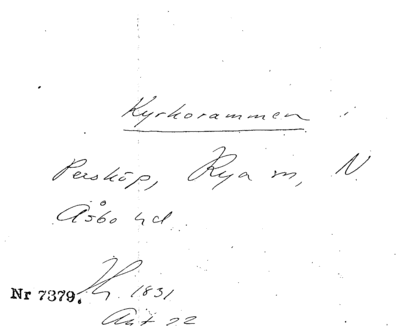 Kyrkorammen
Persköp, Rya sn, N
Åsbo hd.
Nr 7379. 1831
Ant 22